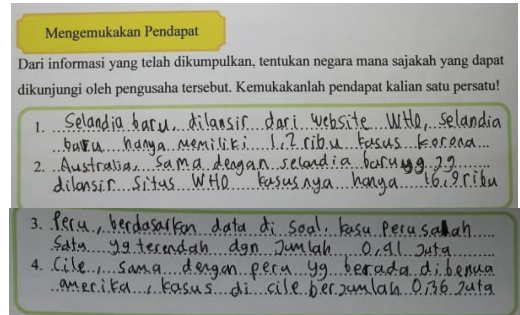 Mengemukakan Pendapat
Dari informasi yang telah dikumpulkan, tentukan negara mana sajakah yang dapat
dikunjungi oleh pengusaha tersebut. Kemukakanlah pendapat kalian satu persatu!
1. Selandia baru, dilansir dari website WHO, selandia
baru hanya memiliki 1,2 ribu kasus korona
2. Australia, sama dengan selandia baru yg jg
dilansir situs WHO kasusnya hanya 16,9 ribu
3. Peru, berdasarkan data di soal, kasu Peru salah
satu yg terendah dgn Jumlah 0,91 Juta
4. Cile, sama dengan peru yg berada di benua
amerika, kasus di cile berjumlah 0,36 Juta